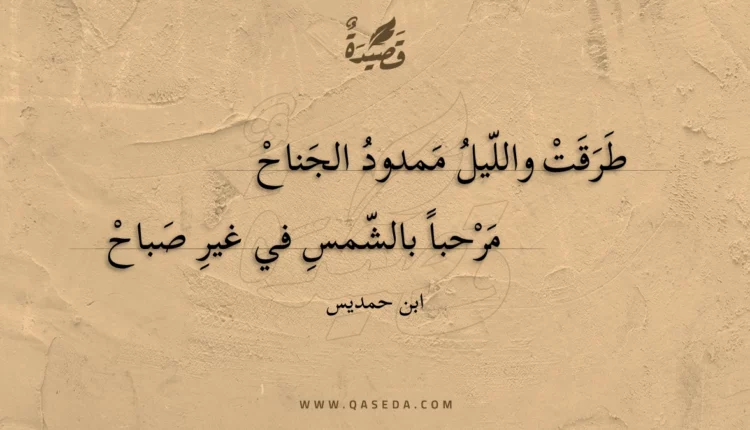 قَصِيْدَةٌ
طَرَقَتْ واللّيلُ مَمدودُ الجَناحْ
مَرْحباً بالشّمسِ في غيرِ صَباحْ
ابن حمديس
WWW.QASEDA.COM